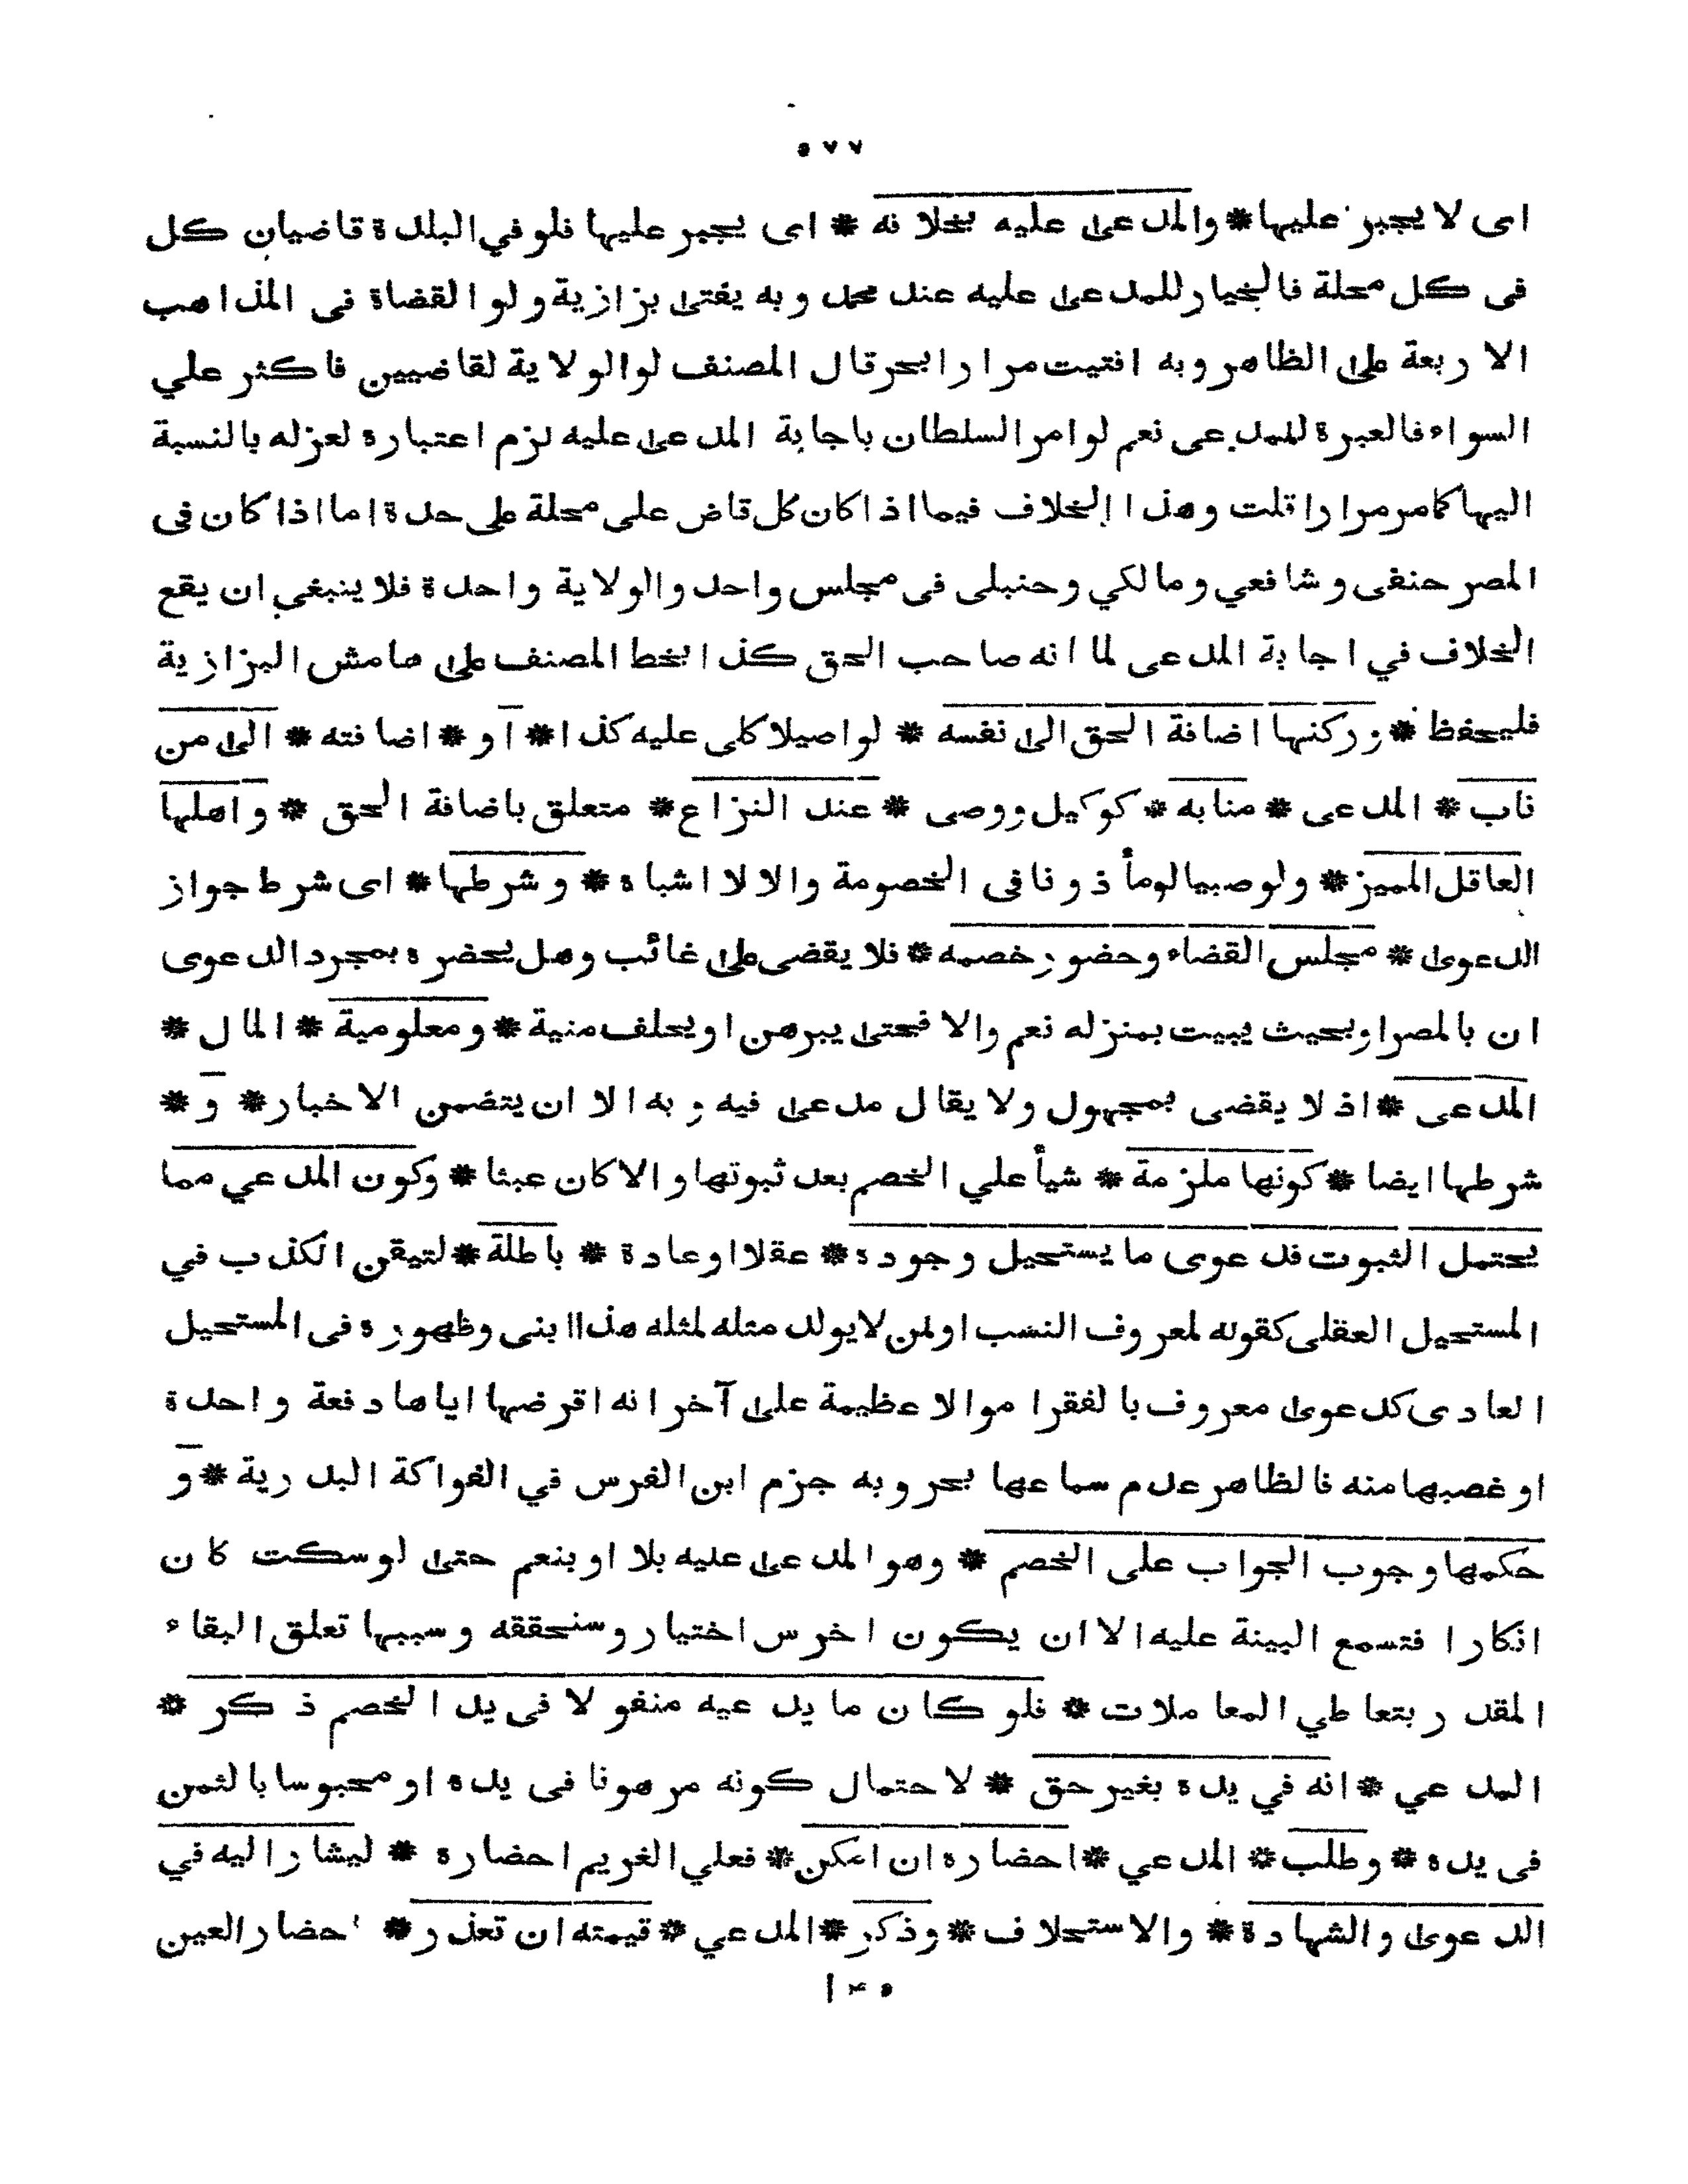 ٥٧٧
اى لا يجبر عليها * والمدعى عليه بخلافه * اى يجبر عليها فلو في البلدة قاضيان كل
فى كل محلة فالخيار للمدعى عليه عند محمد وبه يفتى بزازية ولو القضاة فى المذاهب
الاربعة على الظاهر وبه افتيت مرارا بحر قال المصنف لو الولاية لقاضيين فاكثر علي
السواء فالعبرة للمدعى نعم لو امر السلطان باجابة المدعى عليه لزم اعتباره لعزله بالنسبة
اليها كما مر مرارا قلت وهذا الخلاف فيما اذا كان كل قاض على محلة على حدة اما اذا كان فى
المصر حنفى وشافعي ومالكي وحنبلى فى مجلس واحد والولاية واحدة فلا ينبغي ان يقع
الخلاف في اجابة المدعى لما انه صاحب الحق كذا بخط المصنف على هامش البزازية
فليحفظ * وركنها اضافة الحق الى نفسه * لو اصيلا كلى عليه كذا * او * اضافته * الى من
ناب * المدعى * منابه * كوكيل ووصى * عند النزاع * متعلق باضافة الحق * واهلها
العاقل المميز * ولو صبيا لو مأذونا فى الخصومة والا لا اشباه * وشرطها * اى شرط جواز
الدعوى * مجلس القضاء وحضور خصمه * فلا يقضى على غائب وهل يحضره بمجرد الدعوى
ان بالمصر او بحيث يبيت بمنزله نعم والا فحتى يبرهن او يحلف منية * ومعلومية * المال *
المدعى * اذ لا يقضى بمجهول ولا يقال مدعى فيه وبه الا ان يتضمن الاخبار * و *
شرطها ايضا * كونها ملزمة * شيأ علي الخصم بعد ثبوتها والا كان عبثا * وكون المدعي مما
يحتمل الثبوت فدعوى ما يستحيل وجوده * عقلا او عادة * باطلة * لتيقن الكذب في
المستحيل العقلى كقوله لمعروف النسب او لمن لا يولد مثله لمثله هذا ابنى وظهوره فى المستحيل
العادى كدعوى معروف بالفقر اموالا عظيمة على آخر انه اقرضها اياها دفعة واحدة
او غصبها منه فالظاهر عدم سماعها بحر وبه جزم ابن الغرس في الفواكة البدرية * و
حكمها وجوب الجواب على الخصم * وهو المدعى عليه بلا او بنعم حتى لو سكت كان
انكارا فتسمع البينة عليه الا ان يكون اخرس اختيار وسنحققه وسببها تعلق البقاء
المقدر بتعاطي المعاملات * فلو كان ما يدعيه منقولا فى يد الخصم ذكر *
المدعي * انه في يده بغير حق * لاحتمال كونه مرهونا فى يده او محبوسا بالثمن
فى يده * وطلب * المدعي * احضاره ان امكن * فعلي الغريم احضاره * ليشار اليه في
الدعوى والشهادة * والاستحلاف * وذكر * المدعي * قيمته ان تعذر * احضار العين